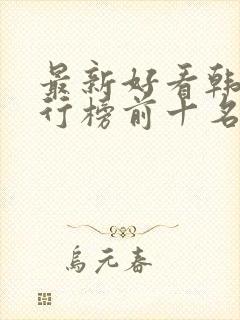 最新好看韩
行榜前十名
乌元春